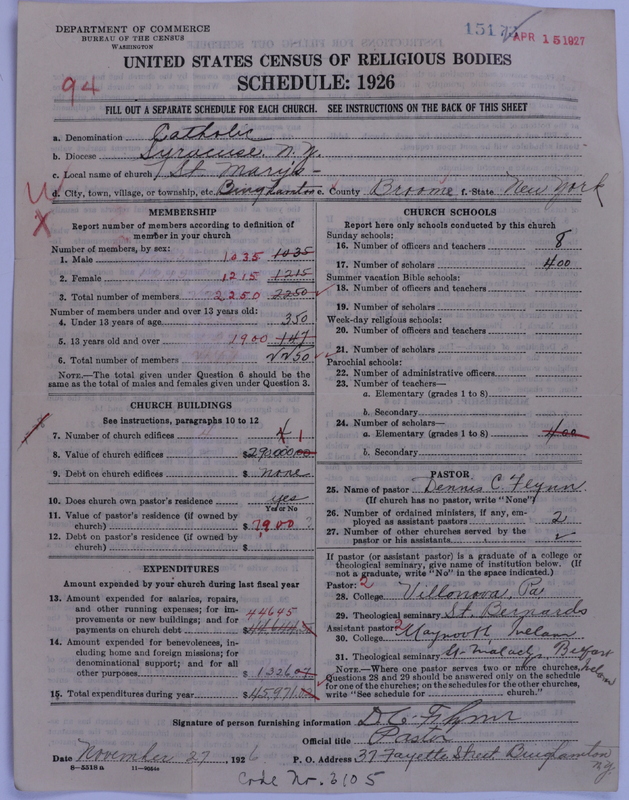 DEPARTMENT OF COMMERCE
BUREAU OF THE CENSUS
WASHINGTON
APR 15 1927
UNITED STATES CENSUS OF RELIGIOUS BODIES
SCHEDULE: 1926
94
FILL OUT A SEPARATE SCHEDULE FOR EACH CHURCH. SEE INSTRUCTIONS ON THE BACK OF THIS SHEET
a. Denomination Catholic
b. Diocese Syracuse N.Y.
c. Local name of church St Mary's -
d. City, town, village, or township, etc. Binghamton e. County Broome f. State New York
X
MEMBERSHIP
Report number of members according to definition of member in your church
Number of members, by sex:
1. Male 1035 1035
2. Female 1215 1215
3. Total number of members 2250 2250
Number of members under and over 13 years old:
4. Under 13 years of age 350
5. 13 years old and over 1900 147
6. Total number of members 2250
NOTE.—The total given under Question 6 should be the
same as the total of males and females given under Question 3.
CHURCH BUILDINGS
See instructions, paragraphs 10 to 12
7. Number of church edifices 1
8. Value of church edifices $290000.00
9. Debt on church edifices $ none
10. Does church own pastor's residence yes
Yes or No
11. Value of pastor's residence (if owned by
church) $ 7900 ?
12. Debt on pastor's residence (if owned by
church) $
EXPENDITURES
Amount expended by your church during last fiscal year
13. Amount expended for salaries, repairs,
and other running expenses; for im-
provements or new buildings; and for 44645
payments on church debt $
14. Amount expended for benevolences, in-
cluding home and foreign missions; for
denominational support; and for all
other purposes $ 132607
15. Total expenditures during year $ 45971
CHURCH SCHOOLS
Report here only schools conducted by this church
Sunday schools:
16. Number of officers and teachers 8
17. Number of scholars 400
Summer vacation Bible schools:
18. Number of officers and teachers
19. Number of scholars
Week-day religious schools:
20. Number of officers and teachers
21. Number of scholars
Parochial schools:
22. Number of administrative officers
23. Number of teachers—
a. Elementary (grades 1 to 8)
b. Secondary
24. Number of scholars—
a. Elementary (grades 1 to 8) 400
b. Secondary
PASTOR
25. Name of pastor Dennis C. Flynn
(If church has no pastor, write "None")
26. Number of ordained ministers, if any, em-
ployed as assistant pastors 2
27. Number of other churches served by the
pastor or his assistants
If pastor (or assistant pastor) is a graduate of a college or
theological seminary, give name of institution below. (If
not a graduate, write "No" in the space indicated.)
Pastor: 2
28. College Villonova, Pa
29. Theological seminary St. Bernards
Assistant pastor: 2
30. College Maynooth, Ireland
31. Theological seminary St. Malachy Belfast Ireland
NOTE.—Where one pastor serves two or more churches,
Questions 28 and 29 should be answered only on the schedule
for one of the churches; on the schedules for the other churches,
write "See schedule for church."
Signature of person furnishing information D. C. Flynn
Official title Pastor
Date November 27, 1926 P. O. Address 37 Fayette Street Binghamton N.Y.
8-5518a 11-9054a
Code No. 3105